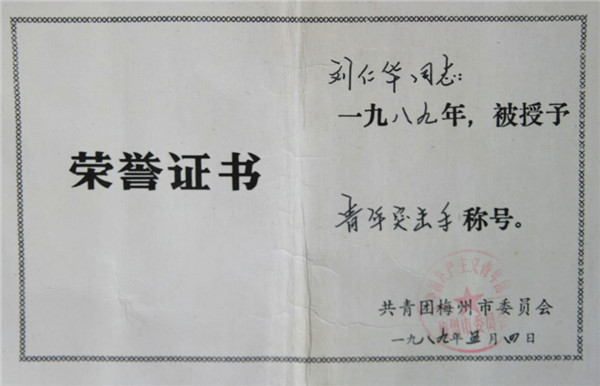 荣誉证书
刘仁华同志:
一九八九年,被授予
青年突击手称号。
共青团梅州市委员会
一九八九年五月四日